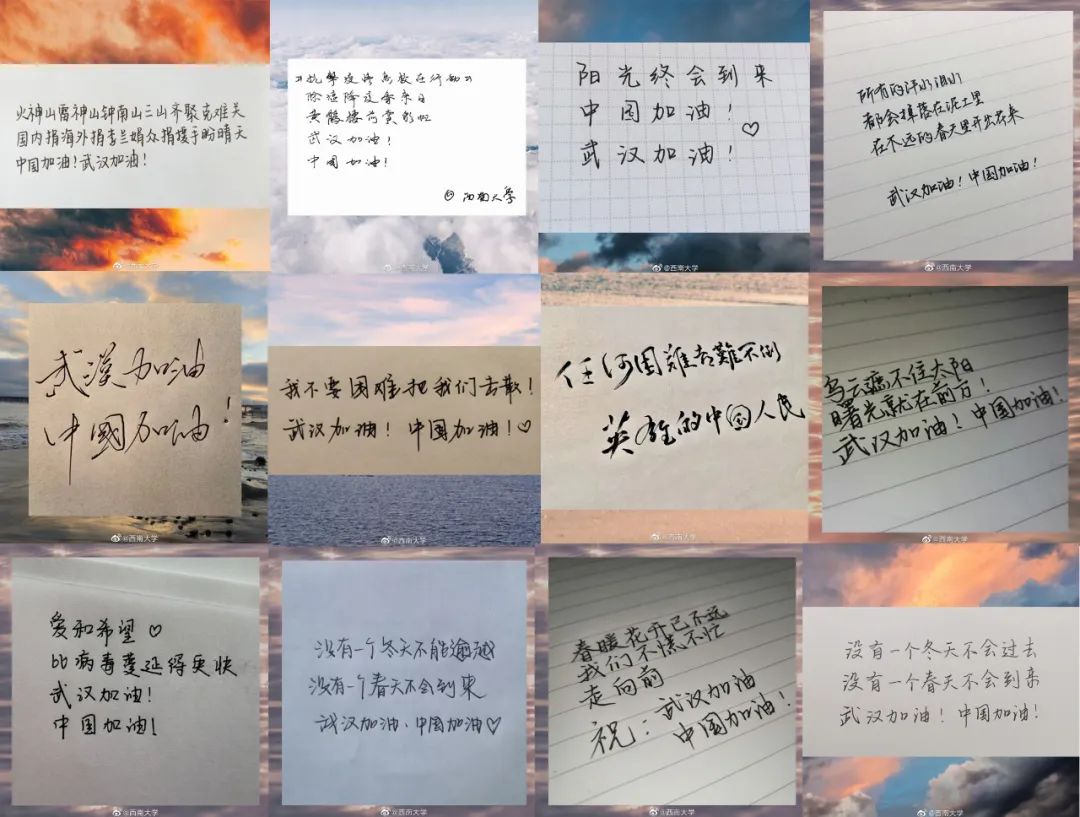 火神山雷神山钟南山三山齐聚克难关
国内捐海外捐李兰娟众捐援手盼晴天
中国加油!武汉加油!
@西南大学
武汉加油!
中国加油!
@西南大学
@西南大学
阳光终会到来
中国加油!
武汉加油!♡
@西南大学
都会掉落在泥土里
在不远的春天里开出花来
武汉加油!中国加油!
@西南大学
武漢加油
中國加油!
@西南大学
我不要困难把我们击散!
武汉加油!中国加油!♡
@西南大学
任何困難克難不倒
英雄的中国人民
@西南大学
乌云遮不住太阳
曙光就在前方!
武汉加油!中国加油!
@西南大学
爱和希望♡
比病毒蔓延得更快
武汉加油!
中国加油!
@西南大学
没有一个冬天不能逾越
没有一个春天不会到来
武汉加油·中国加油♡
@西南大学
春暖花开已不远
我们不慌不忙
走向前
祝:武汉加油
中国加油!
@西南大学
没有一个冬天不会过去
没有一个春天不会到来
武汉加油!中国加油!
@西南大学